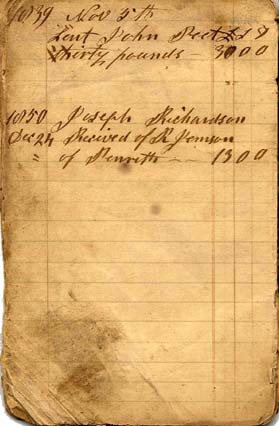 1839 Nov 5th
Lent John Peet £ s d
thirty pounds - 30 0 0
1850 Joseph Richardson
Dec 24 Recived of R Jemson
" of Penrith - 13 0 0